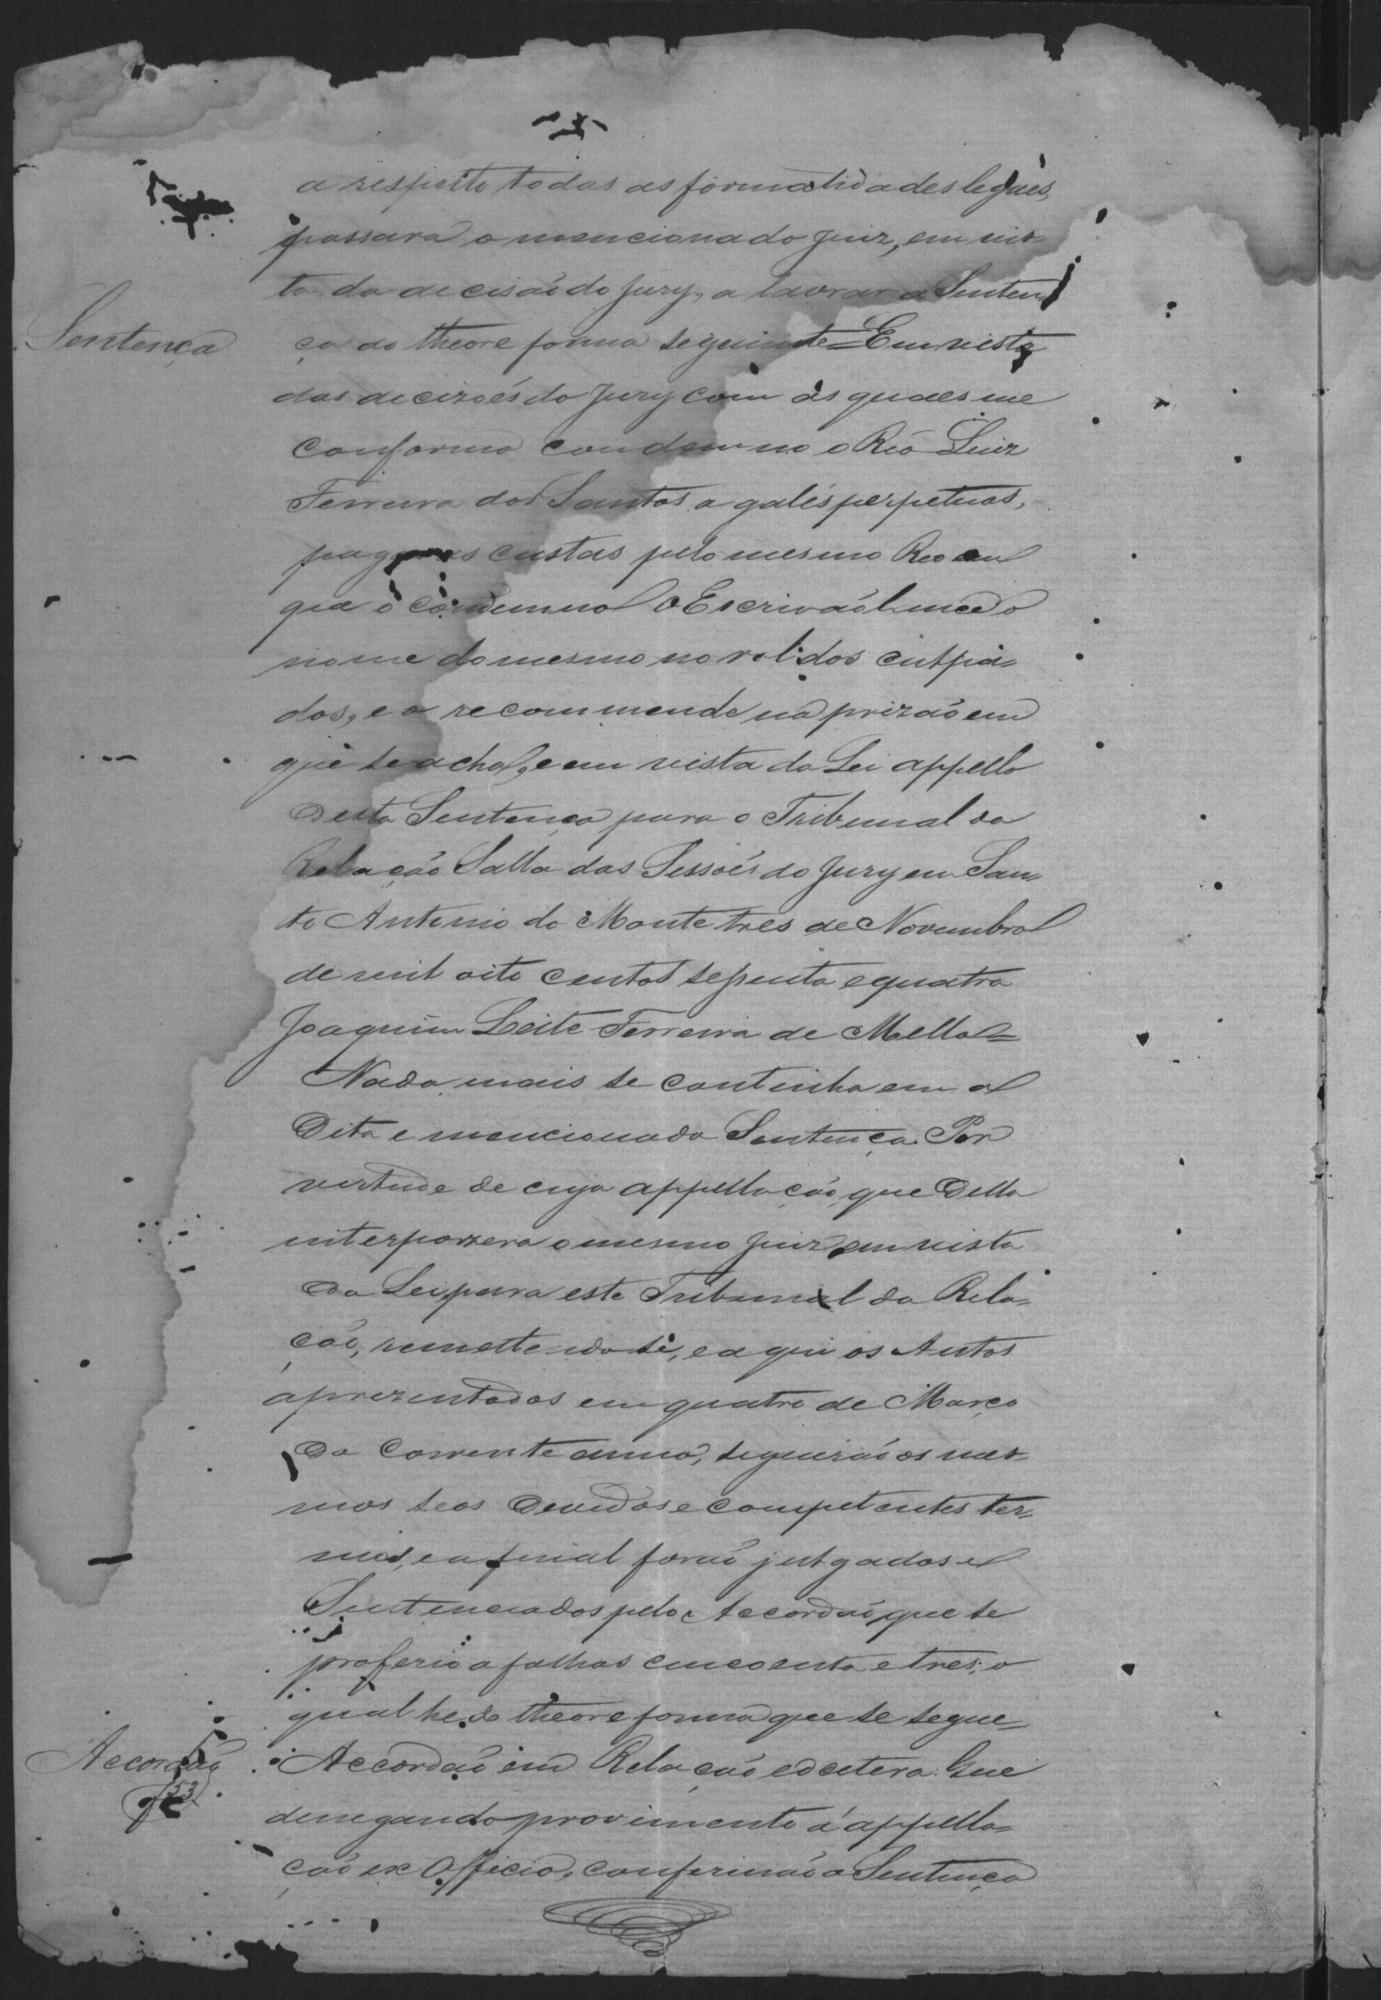 a respeito todas as formalidades legaes,
passara o mencionado Juiz, em vis-
ta da decisão do Jury, a lavrar a Senten
Sentença
ça do theor e forma seguinte = Em vista
das decizoẽs do Jury com as quaes me
conformo condemno o Réo Luiz
Ferreira dos Santos a galés perpetuas,
pagas as custas pelo mesmo Reo em
que o condemno O Escrivaõ lance o
nome do mesmo no rol dos culpa-
dos, e o recommende na prizaõ em
que se acha, e em vista da Lei appello
desta Sentença para o Tribunal da
Relação Salla das Sessoẽs do Jury em San-
to Antonio do Monte tres de Novembro
de mil oito centos setenta e quatro
Joaquim Leite Ferreira de Mello =
Nada mais se continha em a
Dita e mencionada Sentença. Por
vertude de cuja appellação, que della
interpozera o mesmo Juiz em vista
da Lei para este Tribunal da Rela-
ção, remettendo se, e aqui os Autos
aprezentados em quatro de Março
do Corrente anno, seguirão os mes-
mos seos devidos e competentes ter-
mos, e a final foraõ julgados e
Sentenciados pelo Accordaõ, que se
proferio a folhas cincoenta e tres, o
qual he do theor e forma que se segue-
Accordaõ
f 53
Accordaõ em Relação edcetera. Que
denegando provimento á appella-
ção ex Officio, confirmaõ a Sentença